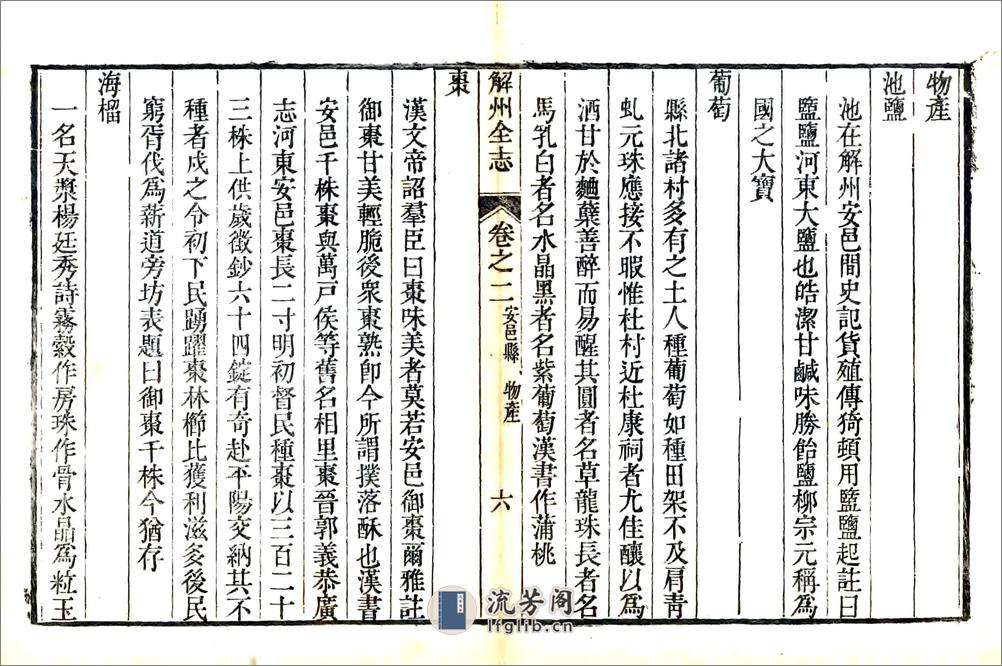 物產
池鹽
池在解州安邑間史記貨殖傳猗頓用盬鹽起註曰
盬鹽河東大鹽也皓潔甘鹹味勝飴鹽柳宗元稱爲
國之大寶
葡萄
縣北諸村多有之土人種葡萄如種田架不及肩青
虬元珠應接不暇惟杜村近杜康祠者尤佳釀以爲
酒甘於麯蘖善醉而易醒其圓者名草龍珠長者名
馬乳白者名水晶黑者名紫葡萄漢書作蒲桃
解州全志 卷之二 安邑縣、物產 六
棗
漢文帝詔羣臣曰棗味美者莫若安邑御棗爾雅註
御棗甘美輕脆後衆棗熟卽今所謂撲落酥也漢書
安邑千株棗與萬戸侯等舊名相里棗晉郭義恭廣
志河東安邑棗長二寸明初督民種棗以三百二十
三株上供歲徵鈔六十四錠有奇赴平陽交納其不
種者戍之令初下民踴躍棗林櫛比獲利滋多後民
窮胥伐爲薪道旁坊表題曰御棗千株今猶存
海榴
一名天漿楊廷秀詩霧縠作房珠作骨水晶爲粒玉
流芳阁
lfglib.cn